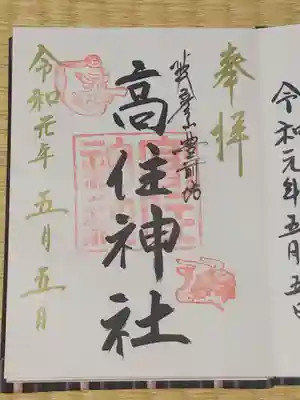 奉拝
英彦山豊前坊
高住神社
令和元年五月五日
令和元年五月五日